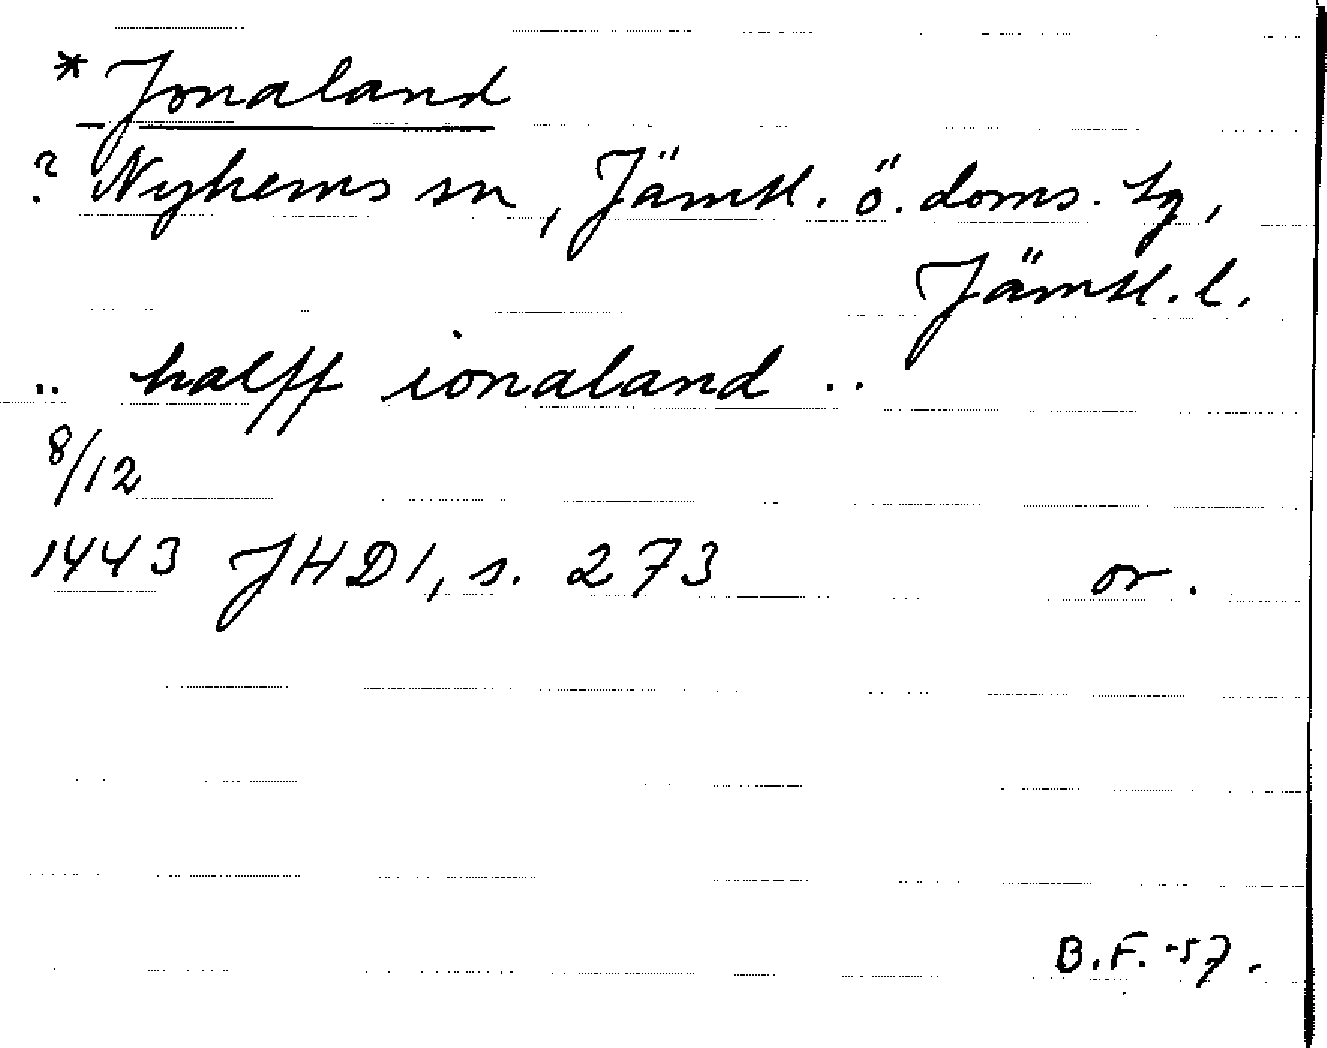 * Jonaland
? Nyhems sn, Jämtl. ö. doms. tg,
Jämtl. l.
.. halff ionaland ..
8/12
1443 JHD 1, s. 273 or.
B.F. -57.